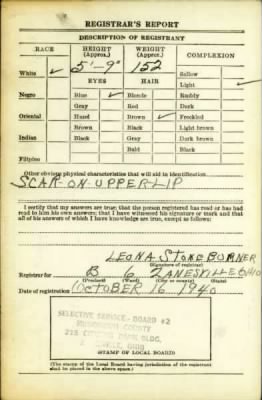 REGISTRAR'S REPORT
DESCRIPTION OF REGISTRANT
RACE HEIGHT (Approx.) WEIGHT (Approx.) COMPLEXION
White ✓ 5'-9" 152 Sallow
EYES HAIR Light ✓
Negro Blue ✓ Blonde Ruddy
Gray Red Dark
Oriental Hazel Brown ✓ Freckled
Brown Black Light brown
Indian Black Gray Dark brown
Bald Black
Filipino
Other obvious physical characteristics that will aid in identification
SCAR-ON-UPPER LIP
I certify that my answers are true; that the person registered has read or has had
read to him his own answers; that I have witnessed his signature or mark and that
all of his answers of which I have knowledge are true, except as follows:
LEONA STONEBURNER
(Signature of registrar)
Registrar for B 6 ZANESVILLE OHIO
(Precinct) (Ward) (City or county) (State)
Date of registration OCTOBER 16 1940
SELECTIVE SERVICE - BOARD #2
MUSKINGUM COUNTY
BLDG.
OHIO
STAMP OF LOCAL BOARD)
(The stamp of the Local Board having jurisdiction of the registrant
shall be placed in the above space.)